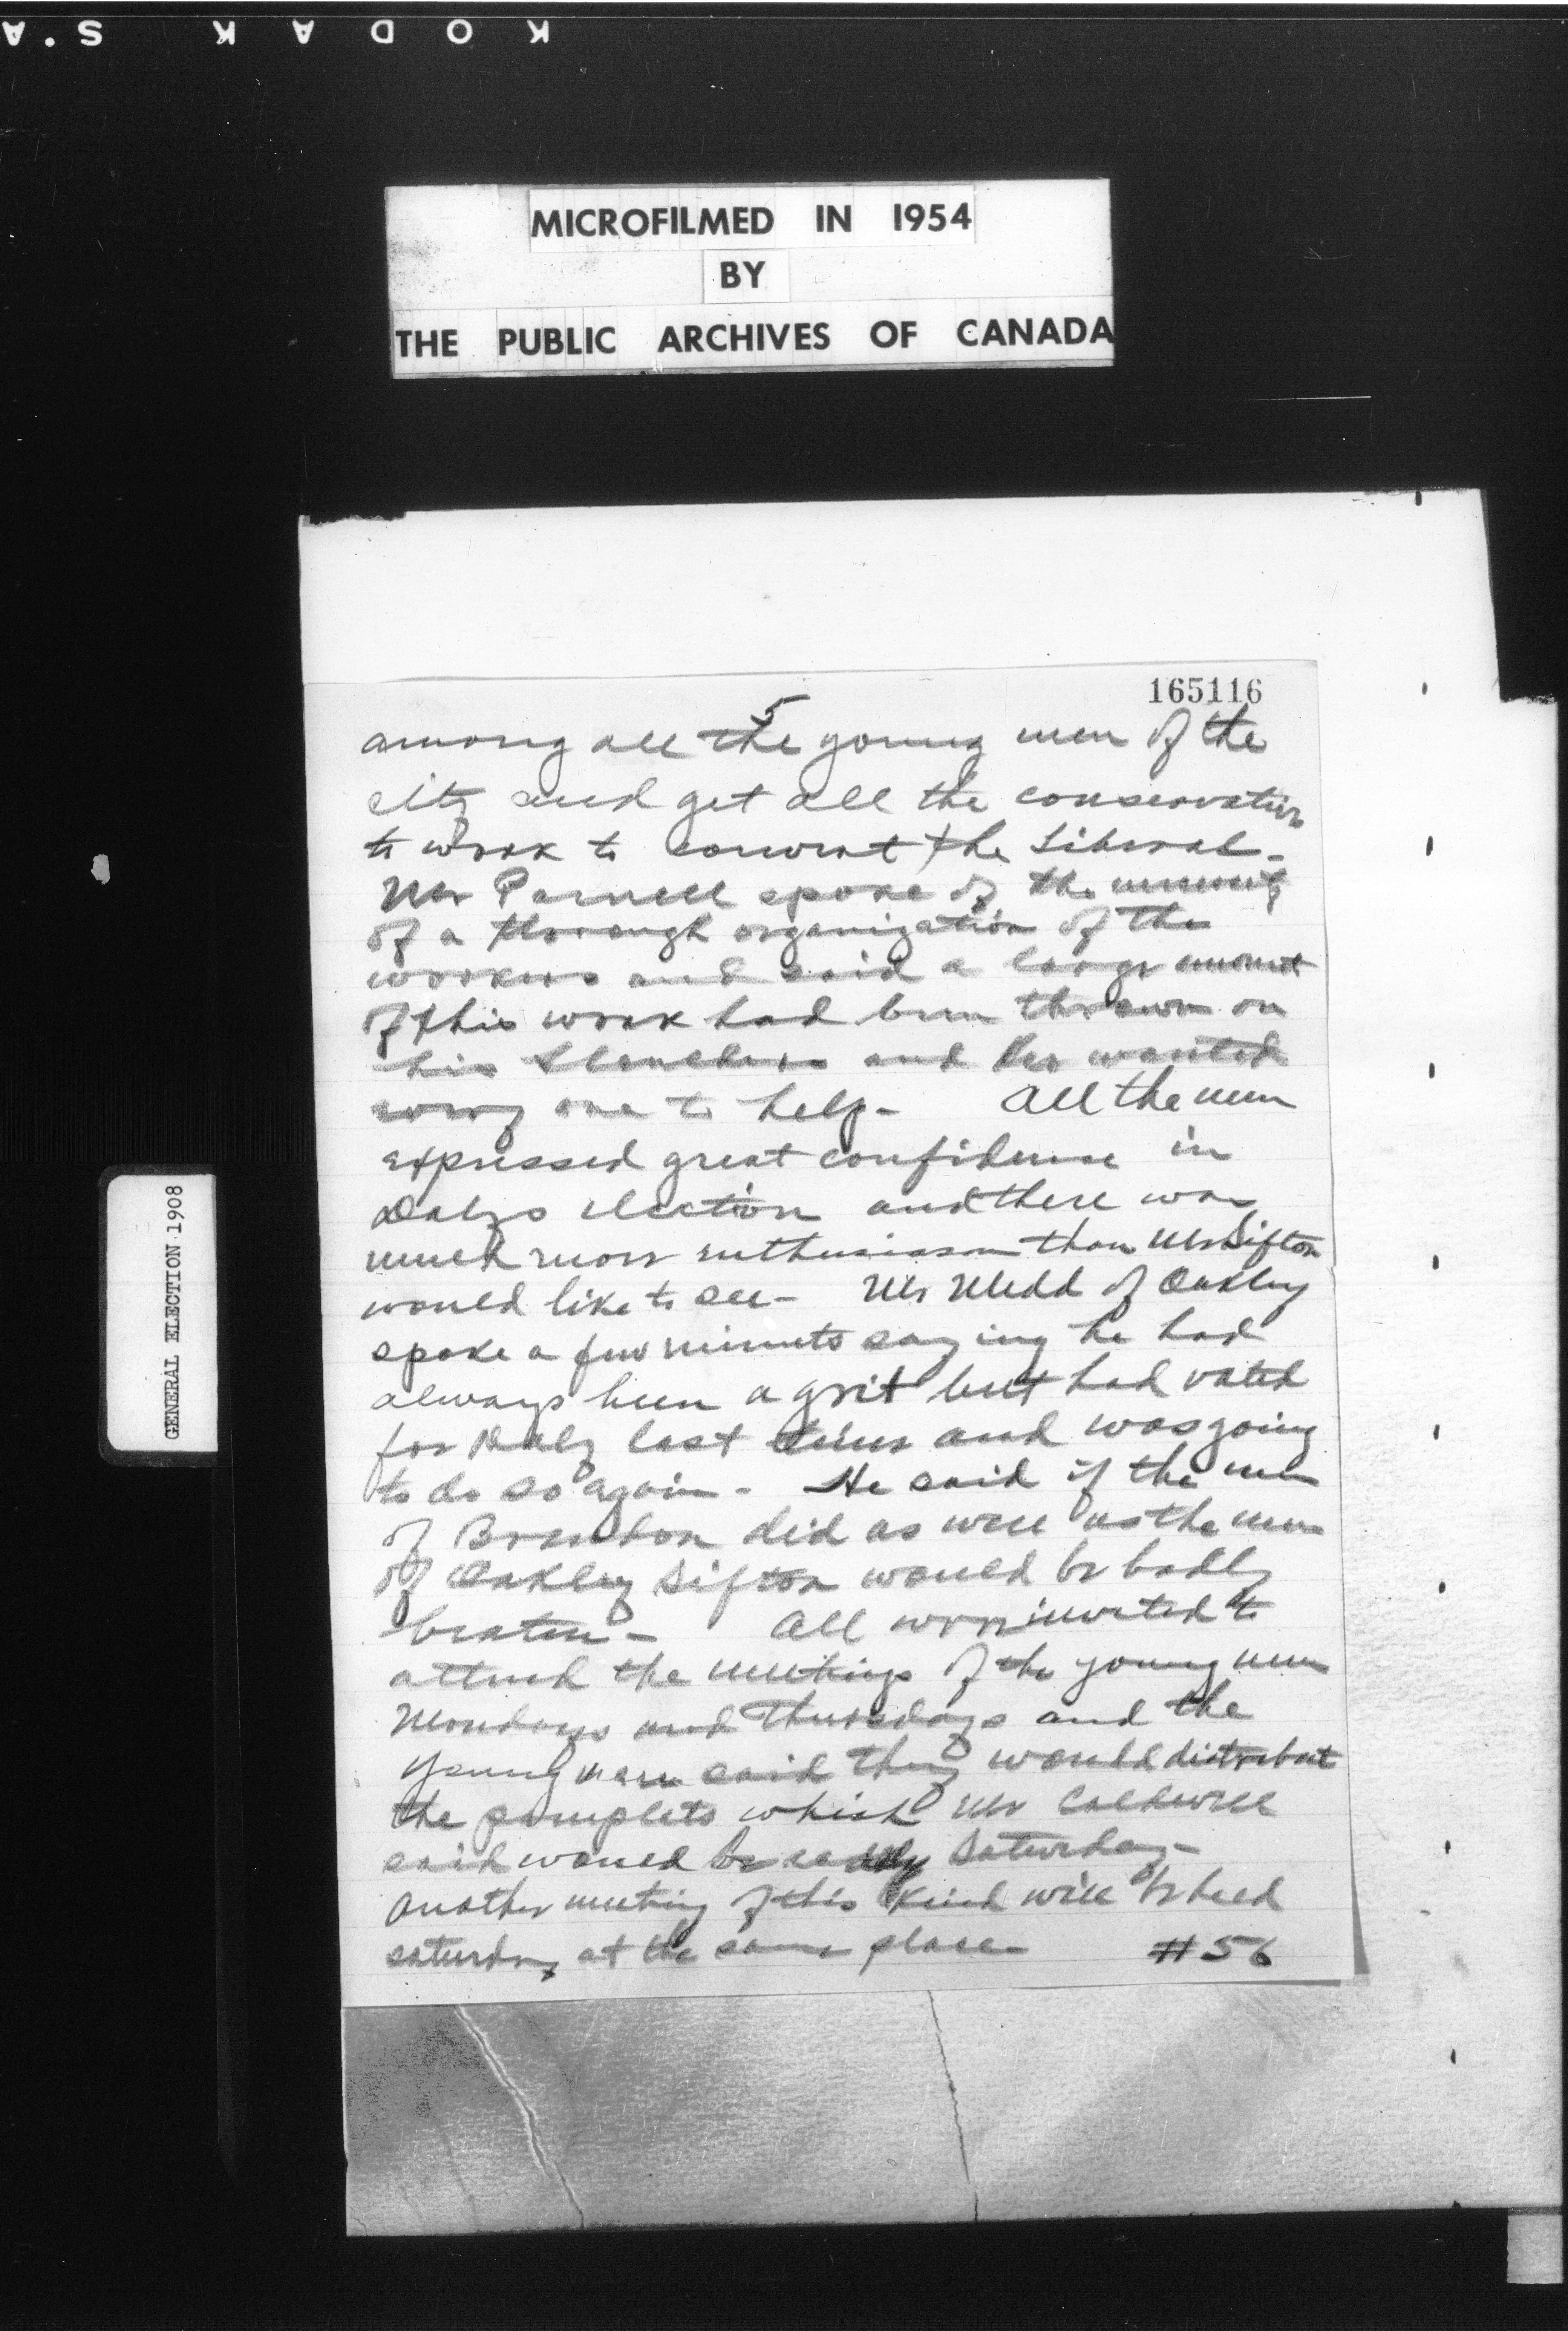 KODAK S.A
MICROFILMED IN 1954
BY
THE PUBLIC ARCHIVES OF CANADA
GENERAL ELECTION 1908
165116
5
among all the young men of the
city and get all the conservative
to work to convert the Liberal -
Mr Parnell spoke of the
of a thorough organization of the
workers and said a large amount
of this work had been thrown on
his and he wanted
every one to help - All the men
expressed great confidence in
Dalys election and there was
much more enthusiasm than Mr Sifton
would like to see - Mr Medd of Oakley
spoke a few minuts saying he had
always been a grit but had voted
for Daly last time and was going
to do so again - He said if the men
of Brandon did as well as the men
of Oakley Sifton would be badly
beaten - All were invited to
attend the meetings of the young men
Mondays and Thursdays and the
young men said they would distribut
the pamplets which Mr Caldwell
said would be ready Saturday -
Another meeting of this kind will be held
saturday at the same place #56